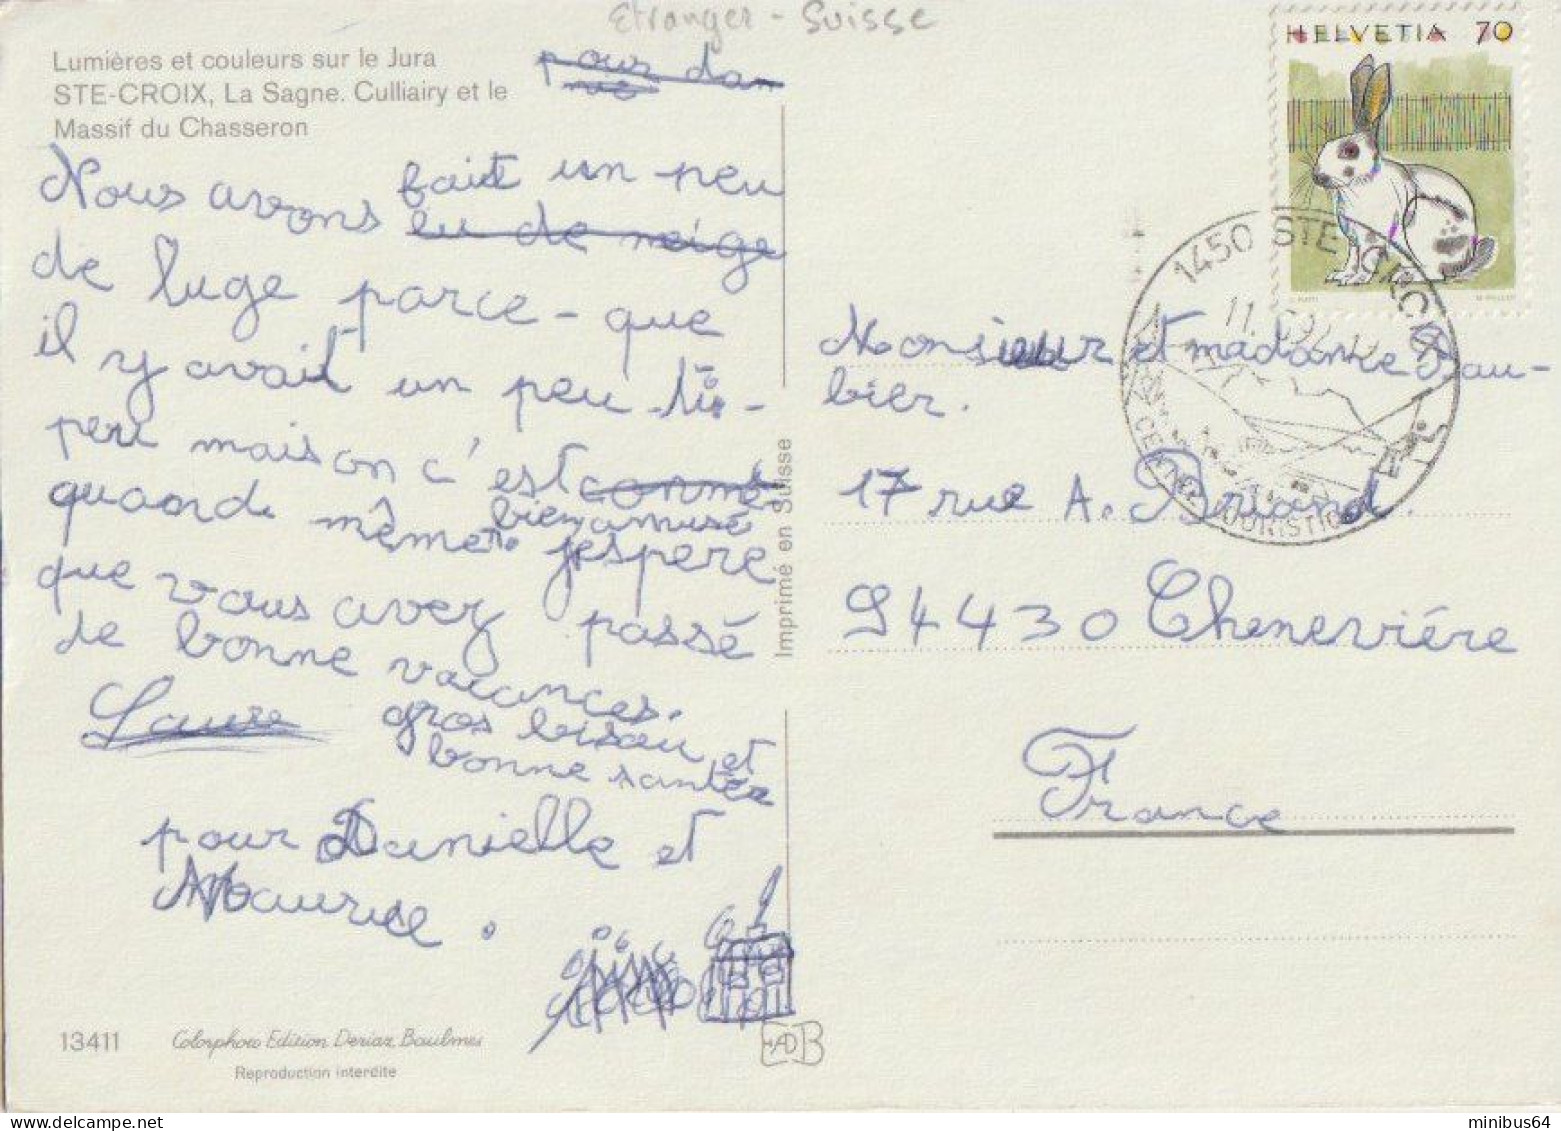 Etranger - Suisse
Lumières et couleurs sur le Jura
STE-CROIX, La Sagne. Culliairy et le
Massif du Chasseron
pour da
Nous avons fait un peu
lu de neige
de luge parce-que
il y avait un peu
peu maison c'est comme
quand même bien amusé
j'espere
que vous avez passé
de bonne vacances.
Laure gros bisou et
bonne santée
pour Danielle et
Maurice.
13411 Colorphoto Edition Deriaz Baulmes
Reproduction interdite
Imprimé en Suisse
HELVETIA 70
1450 STE-CROIX
Monsieur et madame Dau-
bier.
17 rue A. Briand.
94430 Chenevière
France
minibus64